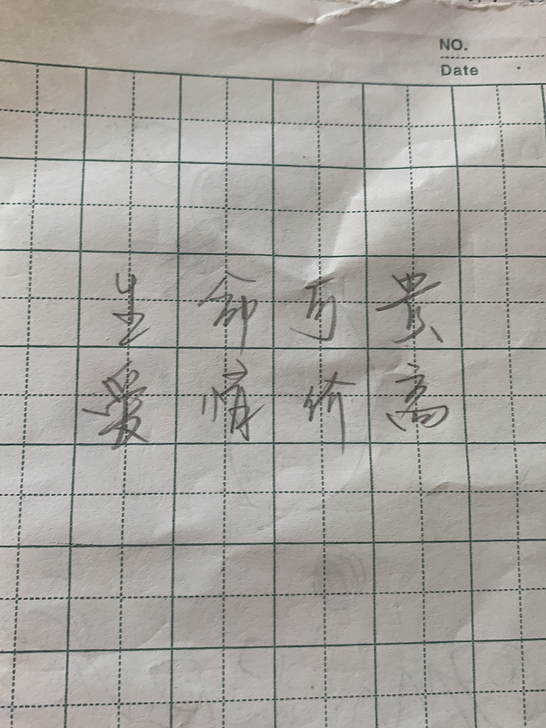 NO.
Date
生命可贵
爱情价高